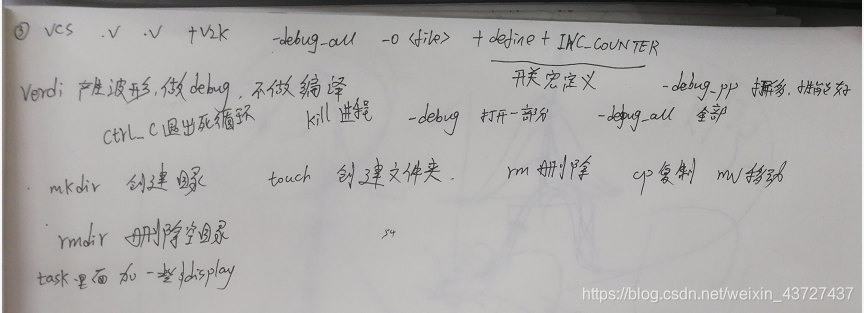 ③ VCS .V .V +V2K -debug_all -o <file> +define+INC_COUNTER
开关宏定义
Verdi 产生波形,做debug,不做编译 -debug_pp
ctrl_C退出死循环 kill 进程 -debug 打开一部分 -debug_all 全部
mkdir 创建目录 touch 创建文件夹. rm 删除 cp复制 mv移动
rmdir 删除空目录
task里面加一些$display
https://blog.csdn.net/weixin_43727437